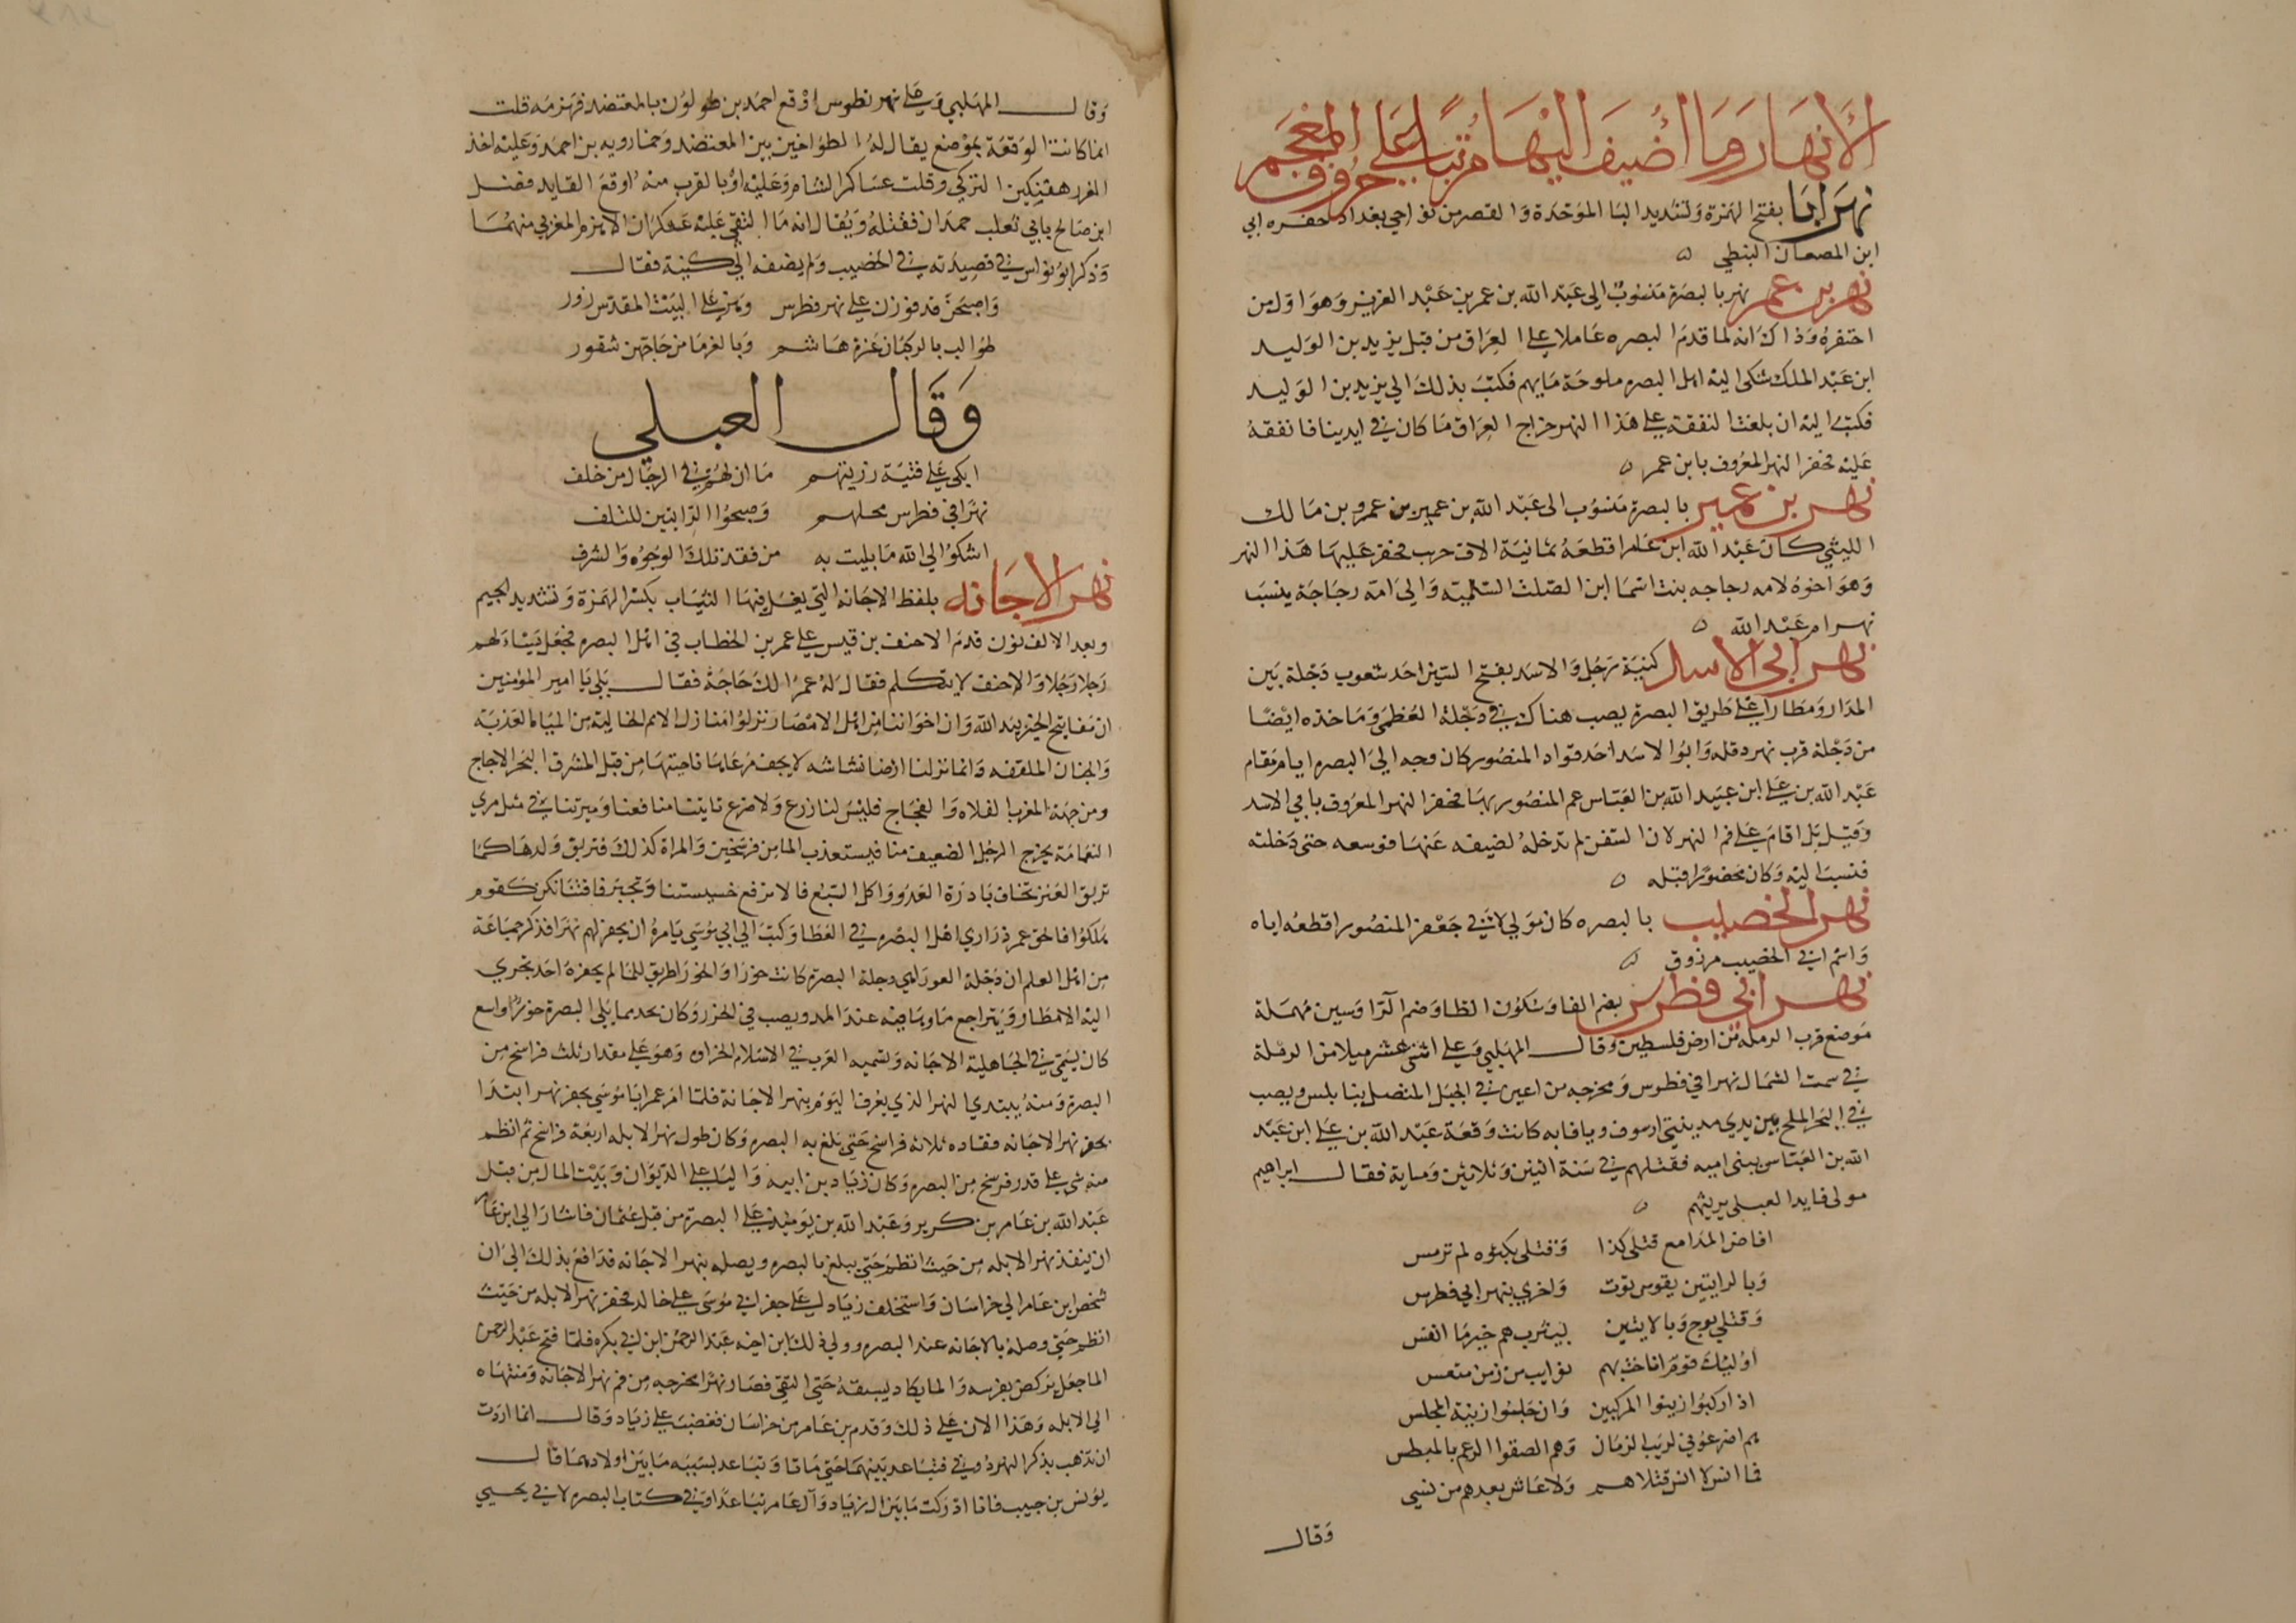 الأنهار وما أضيف إليها مرتبا على حروف المعجم
نهر ابا بفتح الهمزة وتشديد البا الموحدة والقصر من نواحي بغداد حفره ابي
ابن المصعان النبطي ه
نهر بن عمر نهر بالبصرة منسوب الى عبد الله بن عمر بن عبد العزيز وهو اول من
احتفره وذاك انه لما قدم البصره عاملا على العراق من قبل يزيد بن الوليد
ابن عبد الملك شكى اليه اهل البصره ملوحة مايهم فكتب بذلك الي يزيد بن الوليد
فكتب اليه ان بلغت النفقة على هذا النهر خراج العراق ما كان في ايدينا فانفقه
عليه فحفر النهر المعروف بابن عمر ه
نهر بن عمير بالبصرة منسوب الى عبد الله بن عمير بن عمرو بن مالك
الليثي كان عبد الله ابن عامر اقطعه ثمانية الاف جرب فحفر عليها هذا النهر
وهو اخوه لامه دجاجه بنت اسما ابن الصلت السلمية والى امه دجاجة ينسب
نهر ام عبد الله ه
نهر ابي الاسد كنية رجل والاسد بفتح السين احد شعوب دجلة بين
المذار ومطارا على طريق البصرة يصب هناك في دجلة العظمى وماخذه ايضا
من دجلة قرب نهر دقله وابوا الاسد احد قواد المنصور كان وجه الي البصره ايام مقام
عبد الله بن علي ابن عبيد الله بن العباس عم المنصور بها فحفر النهر المعروف بابي الاسد
وقيل بل اقام على فم النهر لان السفن لم تدخله لضيقه عنها فوسعه حتى دخلته
فنسب اليه وكان محفورا قبله ه
نهر الخصيب بالبصره كان مولي لابي جعفر المنصور اقطعه اياه
واسم ابي الخصيب مرزوق ه
نهر ابي فطرس بضم الفا وسكون الطا وضم الرا وسين مهملة
موضع قرب الرمله من ارض فلسطين وقال المهلبي وعلى اثنى عشر ميلا من الرملة
في سمت الشمال نهر ابي فطوس ومخرجه من اعين في الجبل المتصل بنابلس ويصب
في البحر الملح بين يدي مدينتي ارسوف ويافا به كانت وقعة عبد الله بن علي ابن عبد
الله بن العباس ببنى اميه فقتلهم في سنة اثنين وثلاثين ومايه فقال ابراهيم
مولى فايد العبلى يرثيهم ه
افاض المدامع قتلى كدا وقتلى بكثوه لم ترمس
وبالرابيين نفوس توت واخري بنهر ابي فطرس
وقتلي بوج وبالابتين ليثرب هم خير ما انفس
اوليك قوم اناخت بهم نوايب من زمن متعس
اذا ركبوا زينوا المركبين وان جلسوا زينة المجلس
هم اضرعوني لريب الزمان وهم الصقوا الرغم بالمعطس
فما انس لا انس قتلاهم ولا عاش بعدهم من نسي
وقال
وقال المهلبي وعلى نهر نطوس اوقع احمد بن طولون بالمعتضد فهزمه قلت
انما كانت الوقعة بموضع يقال له الطواحين بين المعتضد وخمارويه بن احمد وعليه اخذ
المغرد هفتكين التركي وقلت عساكر الشام وعليه او بالقرب منه اوقع القايد فضل
ابن صالح بابي تغلب حمدان فقتله ويقال انه ما التقى عليه عسكران الا هزم المغربي منهما
وذكر ابو نواس في قصيدته في الخصيب ولم يضفه الى كنية فقال
واصبحن قد فوزن على نهر فطرس وهن على البيت المقدس زور
طوالب بالركبان غزة هاشم وبالفرما من حاجتهن شقور
وقال العبلي
ابكي على فتية رزيتهم ما ان لهم في الرجال من خلف
نهر ابي فطرس محلهم وصبحوا الزابيين للتلف
اشكوا الي الله ما بليت به من فقد تلك الوجوه والشرف
نهر الاجانه بلفظ الاجانه التي يغسل فيها الثياب بكسر الهمزة وتشديد الجيم
وبعد الالف نون قدم الاحنف بن قيس على عمر بن الخطاب في اهل البصره فجعل يسالهم
رجلا رجلا والاحنف لا يتكلم فقال له عمر الك حاجة فقال بلي يا امير المؤمنين
ان مفاتيح الخير بيد الله وان اخواننا من اهل الامصار نزلوا منازل الامم الخالية بين المياه العذبة
والجنان الملتفه وانما نزلنا ارضا نشاشه لا يجف مرعاها ناحيتها من قبل المشرق البحر الاجاج
ومن جهة المغرب الفلاه والعجاج فليس لنا زرع ولا ضرع تاتينا منافعنا وميرتنا في مثل مري
النعامة يخرج الرجل الضعيف منا فيستعذب الما من فرسخين والمراة كذلك فتربق ولدها كما
تربق العنز تخاف بادرة العدو واكل السبع فالا ترفع خسيستنا وتجبر فاقتنا نكن كقوم
هلكوا فالحق عمر ذراري اهل البصره في العطا وكتب الي ابي موسي يامره ان يحفر لهم نهرا فذكر جماعة
من اهل العلم ان دجلة العورا هي دجلة البصرة كانت خورا والخور طريق للما لم يحفره احد تجري
اليه الامطار ويتراجع ماوها فيه عند المد ويصب في الجزر وكان يحد مما يلي البصرة خور واسع
كان يسمي في الجاهلية الاجانه وتسميه العرب في الاسلام الخزاق وهو على مقدار ثلث فراسخ من
البصرة ومنه يبتدي النهر الذي يعرف اليوم بنهر الاجانة فلما امر عمر ابا موسى بحفر نهر ابتدا
بحفر نهر الاجانه فقاده ثلاثه فراسخ حتي بلغ به البصره وكان طول نهر الابله اربعة فراسخ ثم انطم
منه شى على قدر فرسخ من البصره وكان زياد بن ابيه واليا على الديوان وبيت المال من قبل
عبد الله بن عامر بن كريز وعبد الله بن يوميذ على البصرة من قبل عثمان فاشار الى ابن عامر
ان ينفذ نهر الابله من حيث انطم حتى يبلغ بالبصره ويصله بنهر الاجانه فدافع بذلك الى ان
شخص ابن عامر الى خراسان واستخلف زياد على حفر ابي موسى على حاله فحفر نهر الابله من حيث
انطم حتي وصله بالاجانه عند البصره وولي ذلك ابن اخيه عبد الرحمن ابن ابي بكره فلما فتح عبد الرحمن
الما جعل يركض بفرسه والما يكاد يسبقه حتي التقي فصار نهرا مخرجه من فم نهر الاجانه ومنتهاه
الى الابله وهذا الان على ذلك وقدم بن عامر من خراسان فغضب على زياد وقال انما اردت
ان تذهب بذكر النهر دوني فتباعد بينهما حتى ماتا وتباعد بسببه ما بين اولادهما قال
يونس بن حبيب فانا ادركت ما بين ال زياد وآل عامر تباعدا وفي كتاب البصره لابي يحيي